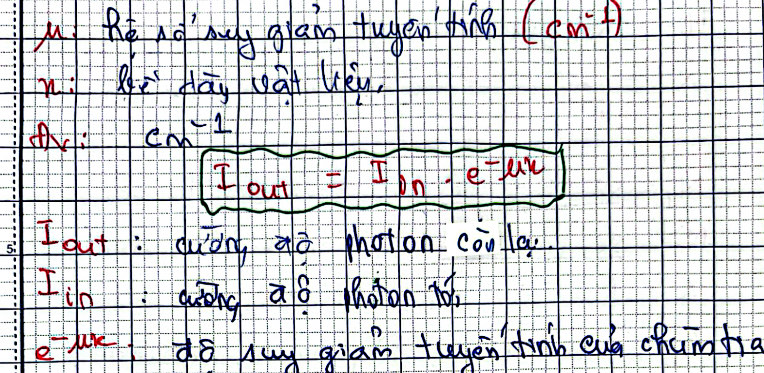 μ: hệ số suy giảm tuyến tính (cm⁻¹)
x: bề dày vật liệu.
Đv: cm⁻¹
I out = I in . e^-μx
I out : cường độ photon còn lại.
I in : cường độ photon tới,
e^-μx : độ suy giảm tuyến tính của chùm tia